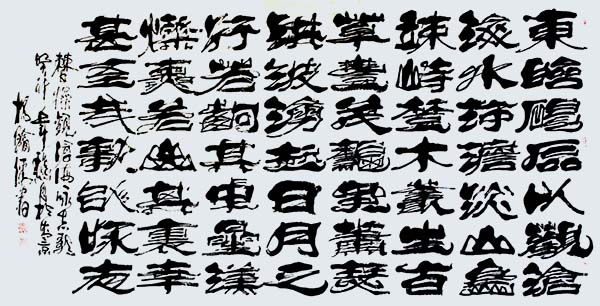 東臨碣石以觀滄
海水何澹澹山島
竦峙樹木叢生百
草豐茂秋風蕭瑟
洪波湧起日月之
行若出其中星漢
燦爛若出其裏幸
甚至哉歌以詠志
曹操觀滄海詠志歌